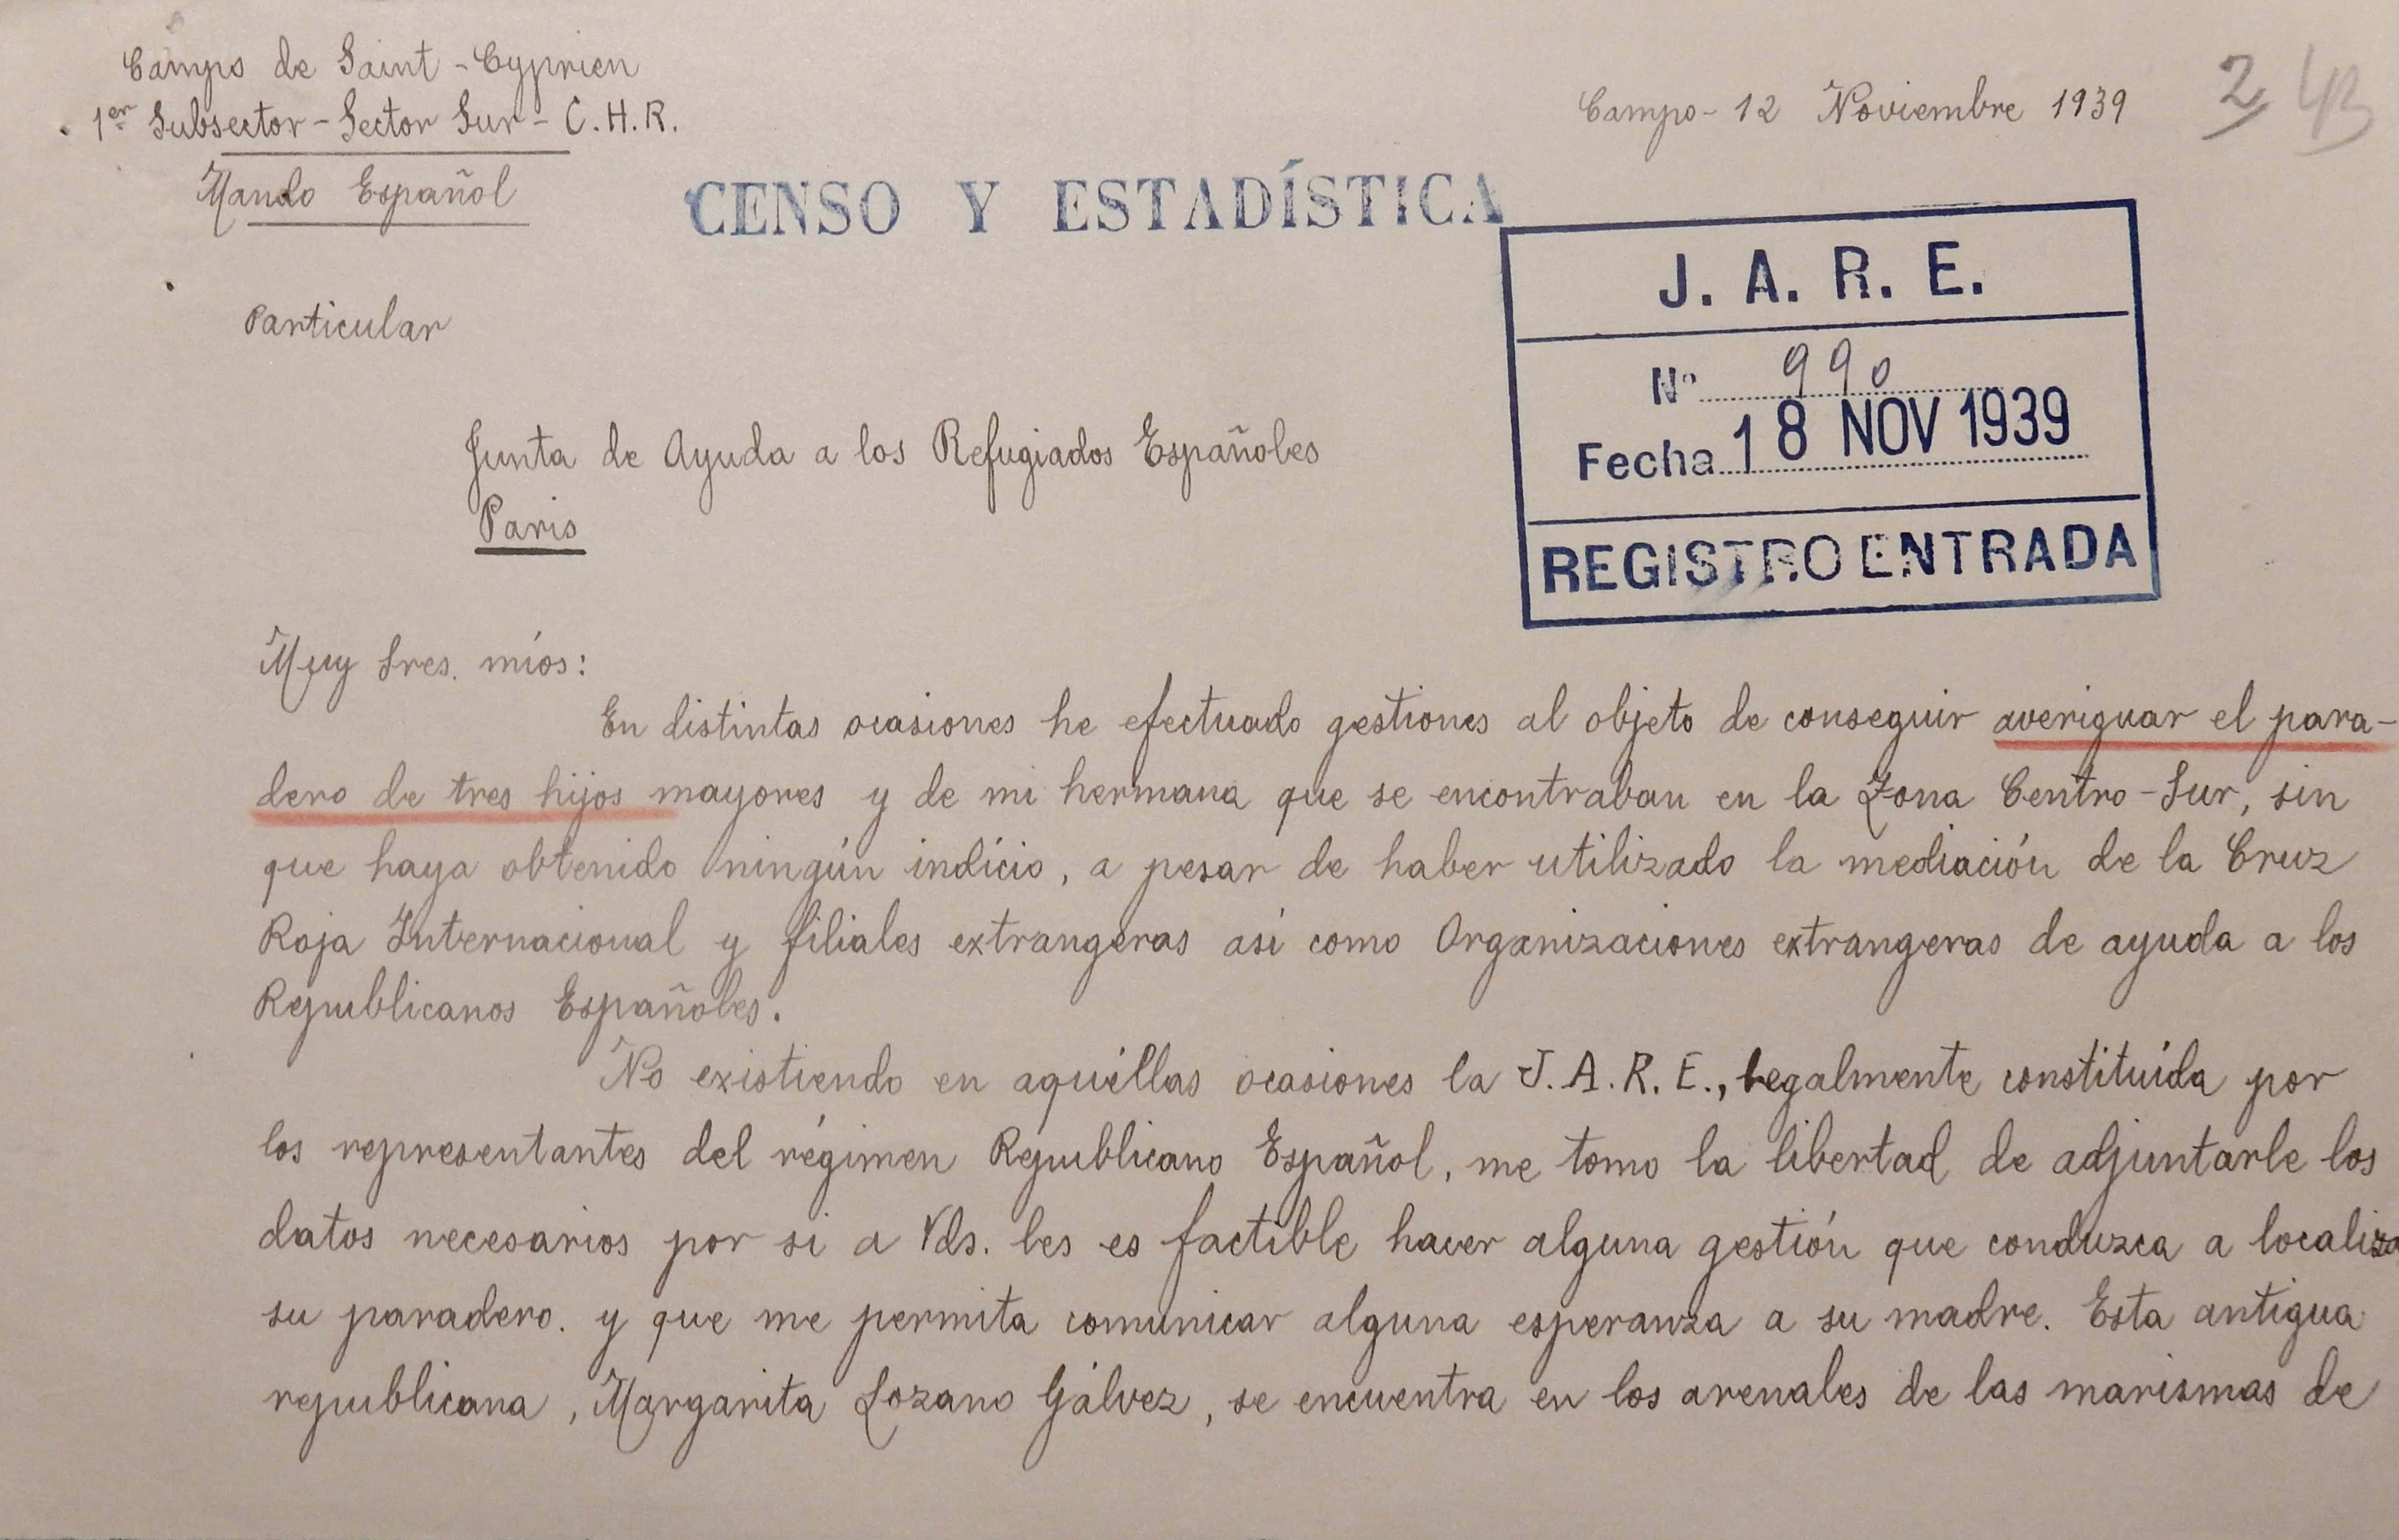 Camps de Saint-Cyprien
1er Subsector - Sector Sur - C.H.R.
Mando Español
Campo - 12 Noviembre 1939
2
43
CENSO Y ESTADÍSTICA
J. A. R. E.
Nº 990
Fecha 18 NOV 1939
REGISTRO ENTRADA
Particular
Junta de Ayuda a los Refugiados Españoles
Paris
Muy Sres. míos:
En distintas ocasiones he efectuado gestiones al objeto de conseguir averiguar el para-
dero de tres hijos mayores y de mi hermana que se encontraban en la Zona Centro-Sur, sin
que haya obtenido ningún indício, a pesar de haber utilizado la mediación de la Cruz
Roja Internacional y filiales extrangeras así como Organizaciones extrangeras de ayuda a los
Republicanos Españoles.
No existiendo en aquéllas ocasiones la J.A.R.E., legalmente constituída por
los representantes del régimen Republicano Español, me tomo la libertad de adjuntarle los
datos necesarios por si a Vds. les es factible hacer alguna gestión que conduzca a localiza
su paradero. y que me permita comunicar alguna esperanza a su madre. Esta antigua
republicana, Margarita Lozano Gálvez, se encuentra en los arenales de las marismas de